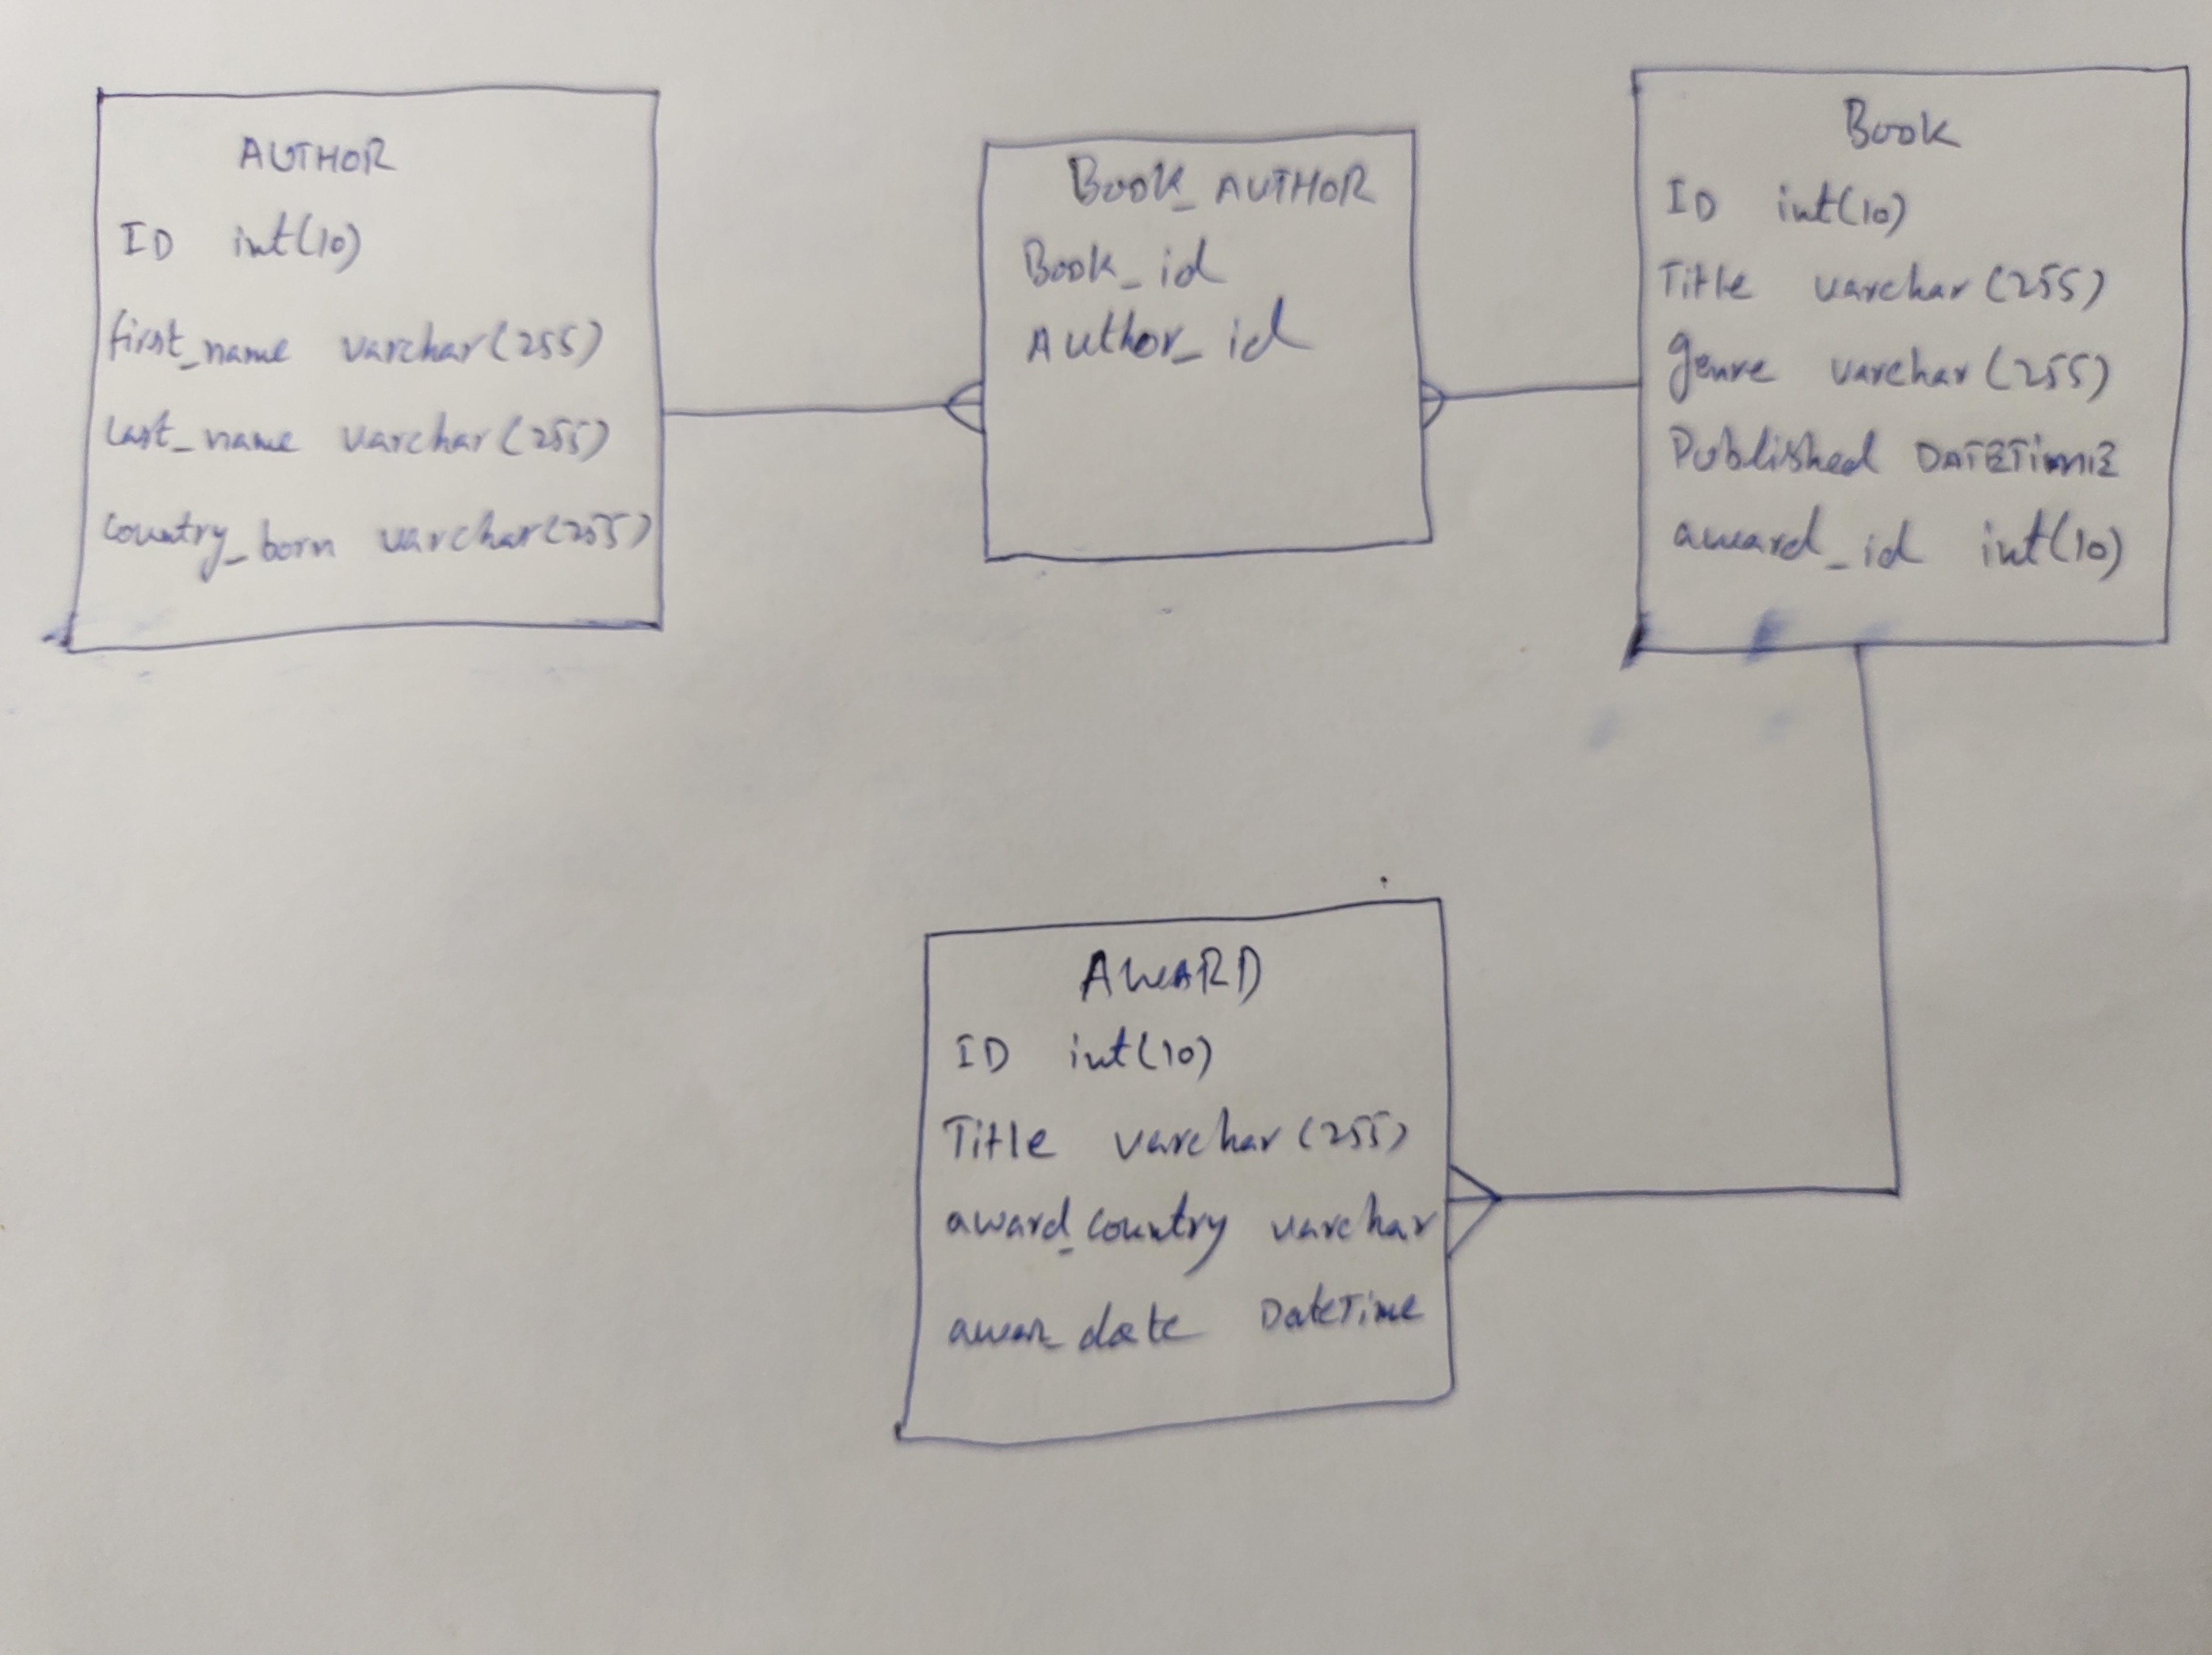 AUTHOR
ID int(10)
first_name varchar(255)
last_name varchar(255)
country_born varchar(255)
Book_AUTHOR
Book_id
Author_id
Book
ID int(10)
Title varchar(255)
genre varchar(255)
Published DATETimE
award_id int(10)
AWARD
ID int(10)
Title varchar(255)
award_country varchar
awar_date DateTime